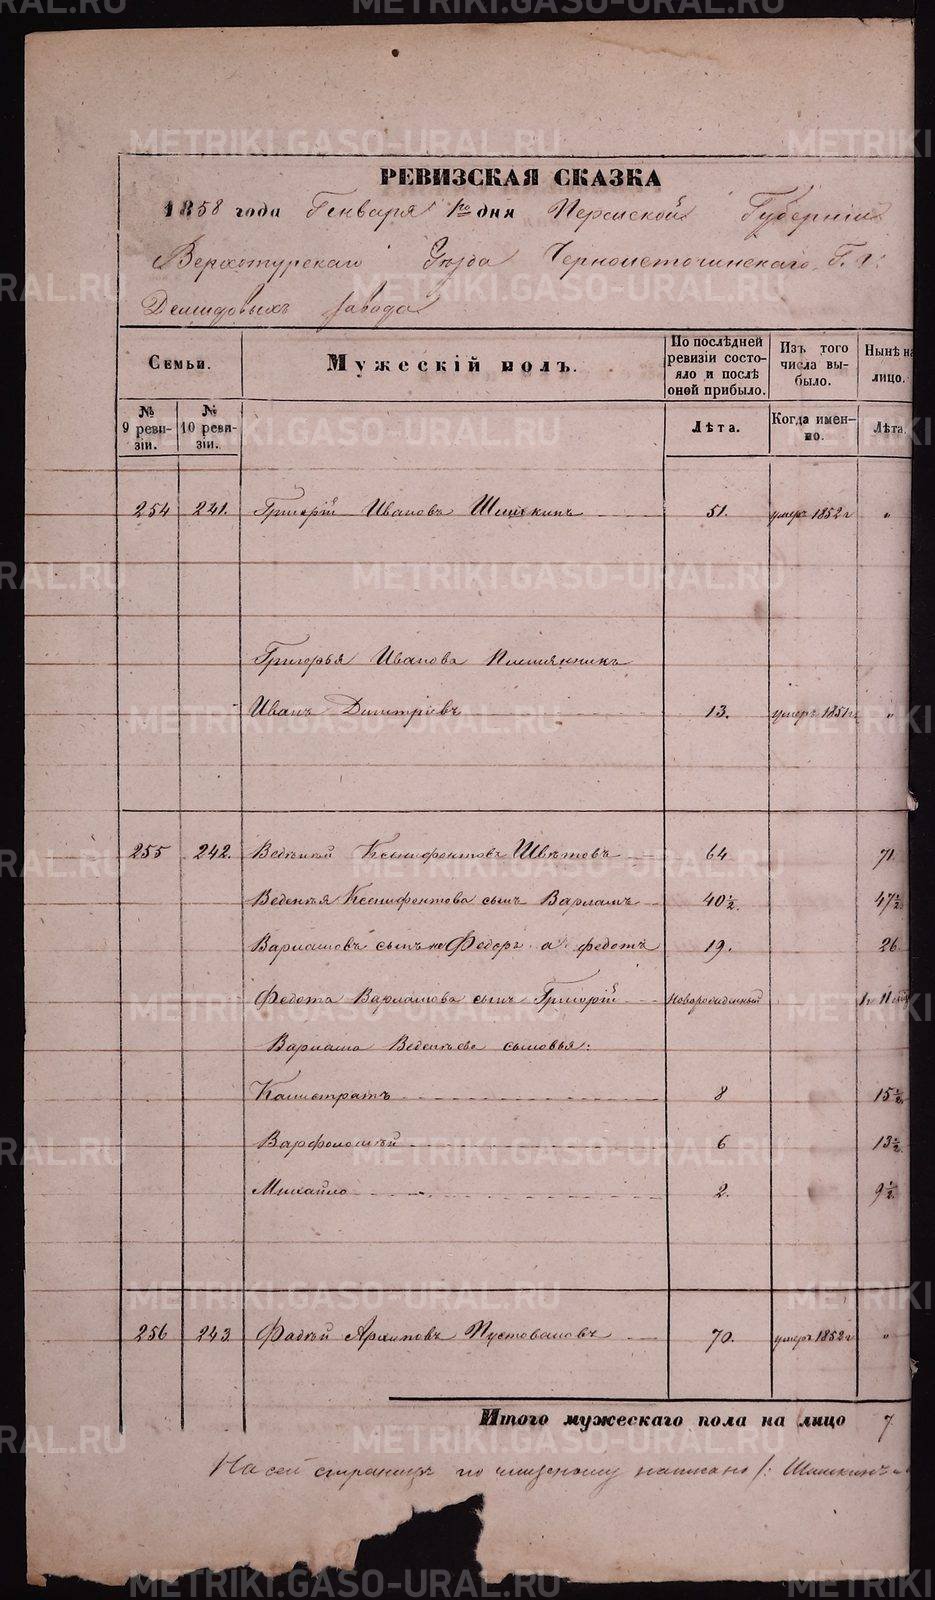 РЕВИЗСКАЯ СКАЗКА
1858 года Генваря 1го дня Пермской Губерніи
Верхотурскаго Уѣзда Черноисточинскаго Г. г:
Демидовыхъ завода
Семьи.
Мужескій полъ.
По послѣдней ревизіи состояло и послѣ оной прибыло.
Изъ того числа выбыло.
Нынѣ на лицо.
№ 9 ревизіи.
№ 10 ревизіи.
Лѣта.
Когда именно.
Лѣта.
254 241. Григорій Ивановъ Шишкинъ 51. умеръ 1852 г "
Григорья Иванова племянникъ
Иванъ Дмитріевъ 13. умеръ 1851 г "
255 242. Веденѣй Ксенифонтовъ Швѣтовъ 64 71.
Веденѣя Ксенифонтова сынъ Варламъ 40½. 47½
Варламовъ сынъ не Федоръ а федотъ 19. 26
Федота Варламова сынъ Григорій Новорожденный
Варлама Веденѣева сыновья:
Калистратъ 8 15½
Варфоломѣй 6 13½
Михайло 2. 9½
256 243 Фадѣй Архиповъ Пустоваловъ 70. умеръ 1852 г "
Итого мужескаго пола на лицо 7
На сей страницѣ по чищеному написано /: Шишкинъ
METRIKI.GASO-URAL.RU